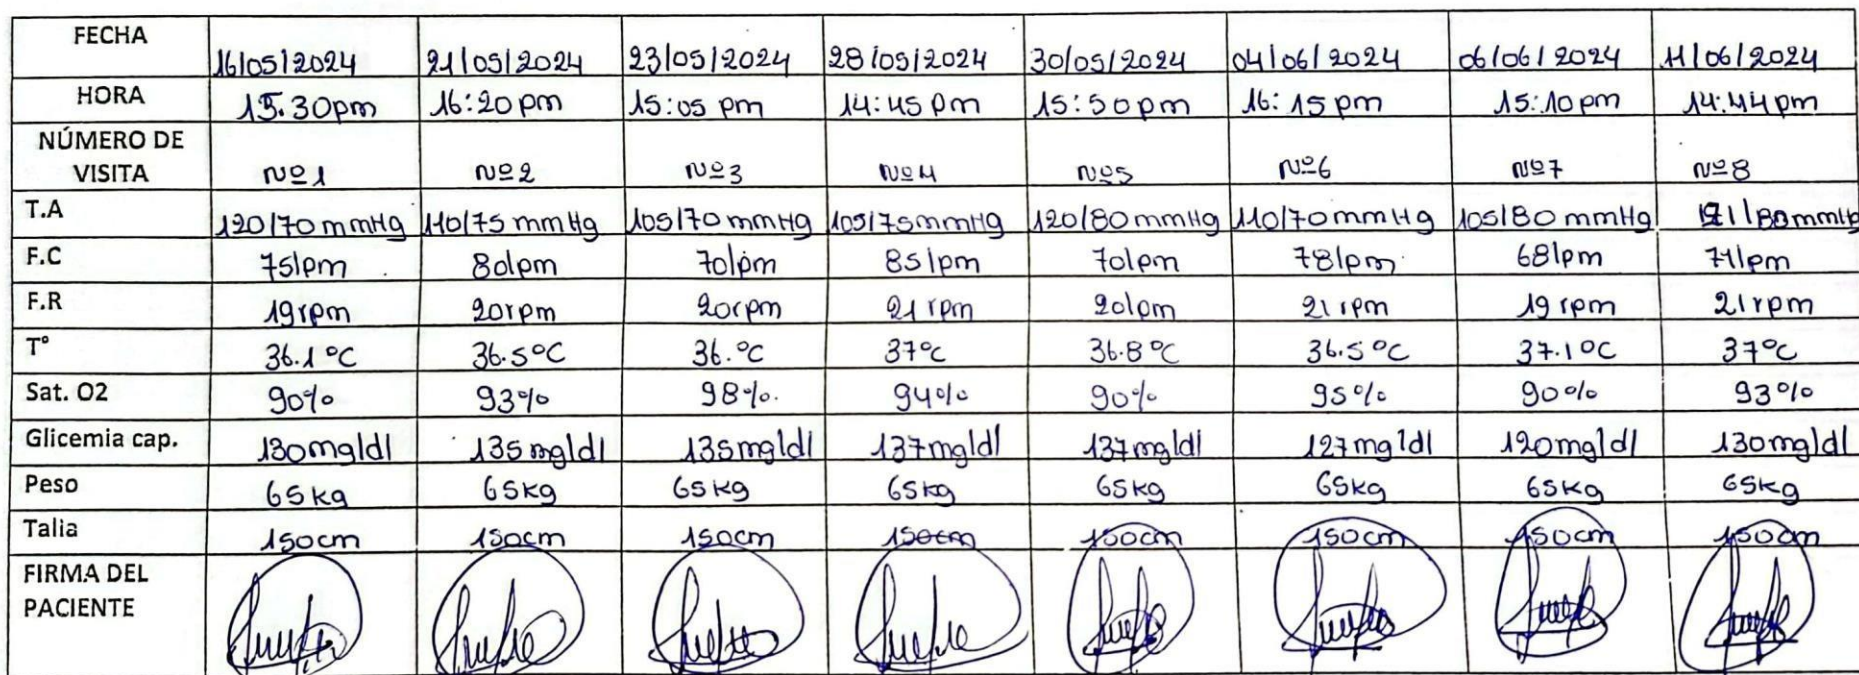 FECHA 16/05/2024 21/05/2024 23/05/2024 28/05/2024 30/05/2024 04/06/2024 06/06/2024 11/06/2024
HORA 15:30pm 16:20pm 15:05 pm 14:45 pm 15:50pm 16:15pm 15:10pm 14:44pm
NÚMERO DE
VISITA Nº1 Nº2 Nº3 Nº4 Nº5 Nº6 Nº7 Nº8
T.A 120/70mmHg 110/75mmHg 105/70mmHg 105/75mmHg 120/80mmHg 110/70mmHg 105/80mmHg
F.C 75lpm 80lpm 70lpm 85lpm 70lpm 78lpm 68lpm 71lpm
F.R 19rpm 20rpm 20rpm 21rpm 20lpm 21rpm 19rpm 21rpm
T° 36.1°C 36.5°C 36.°C 37°C 36.8°C 36.5°C 37.1°C 37°C
Sat. O2 90% 93% 98%. 94% 90% 95% 90% 93%
Glicemia cap. 130mg/dl 135mg/dl 135mg/dl 137mg/dl 137mg/dl 127mg/dl 120mg/dl 130mg/dl
Peso 65kg 65kg 65kg 65kg 65kg 65kg 65kg 65kg
Talia 150cm 150cm 150cm 150cm 150cm 150cm 150cm 150cm
FIRMA DEL
PACIENTE